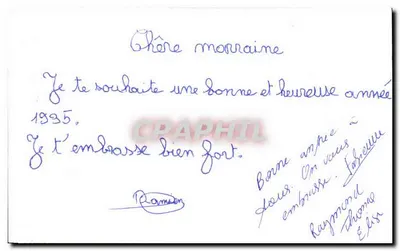 Chère morraine
Je te souhaite une bonne et heureuse année
1995.
Je t'embrasse bien fort.
Damien
Bonne année à
tous. On vous
embrasse. Fabienne
Raymond
Thomas
Elise
CRAPHIL